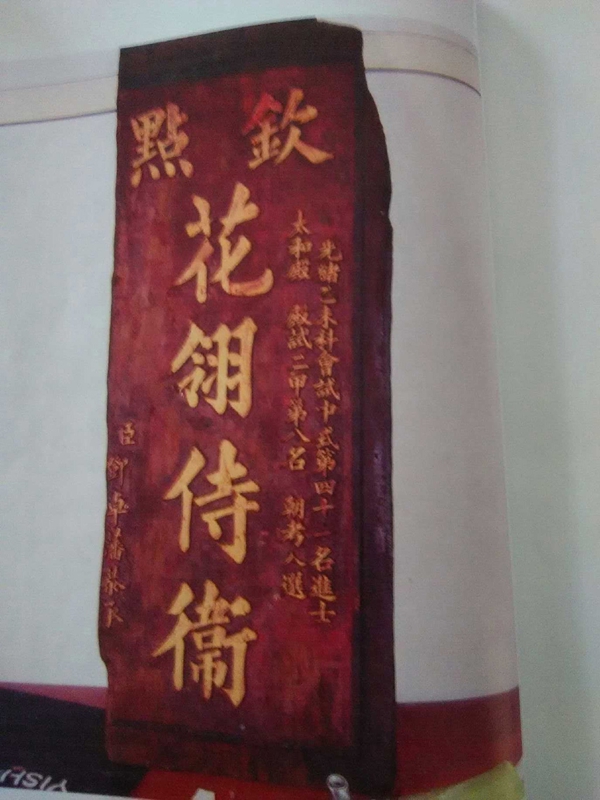 欽點
光緒乙未科會試中式第四十一名進士
太和殿 殿試二甲第八名 朝考入選
花翎侍衞
臣 卓藩恭承